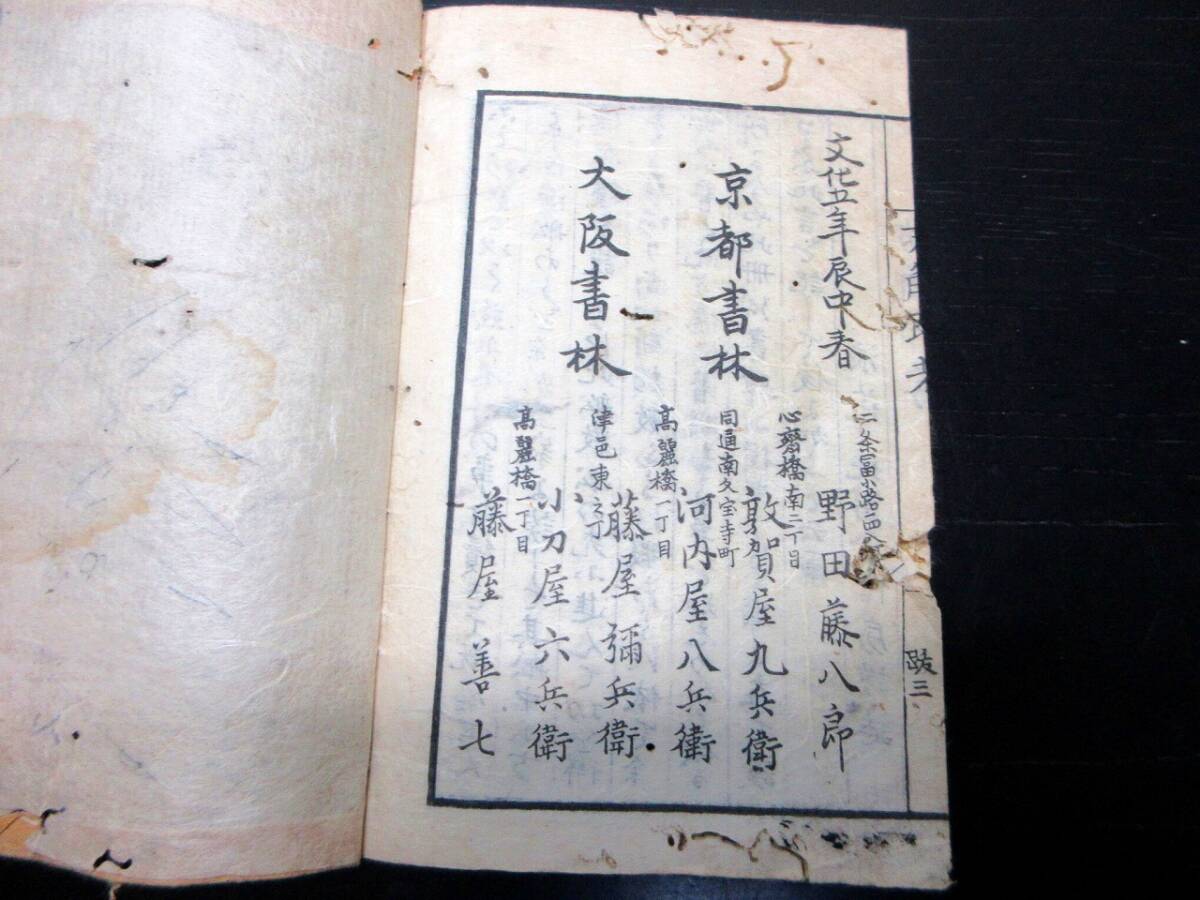 文化五年辰中春
京都書林
二条冨小路
野田藤八郎
大阪書林
心齋橋南二丁目
敦賀屋九兵衛
同通南久宝寺町
河内屋八兵衛
高麗橋一丁目
藤屋彌兵衛
東
小刀屋六兵衛
高麗橋一丁目
藤屋善七
跋三